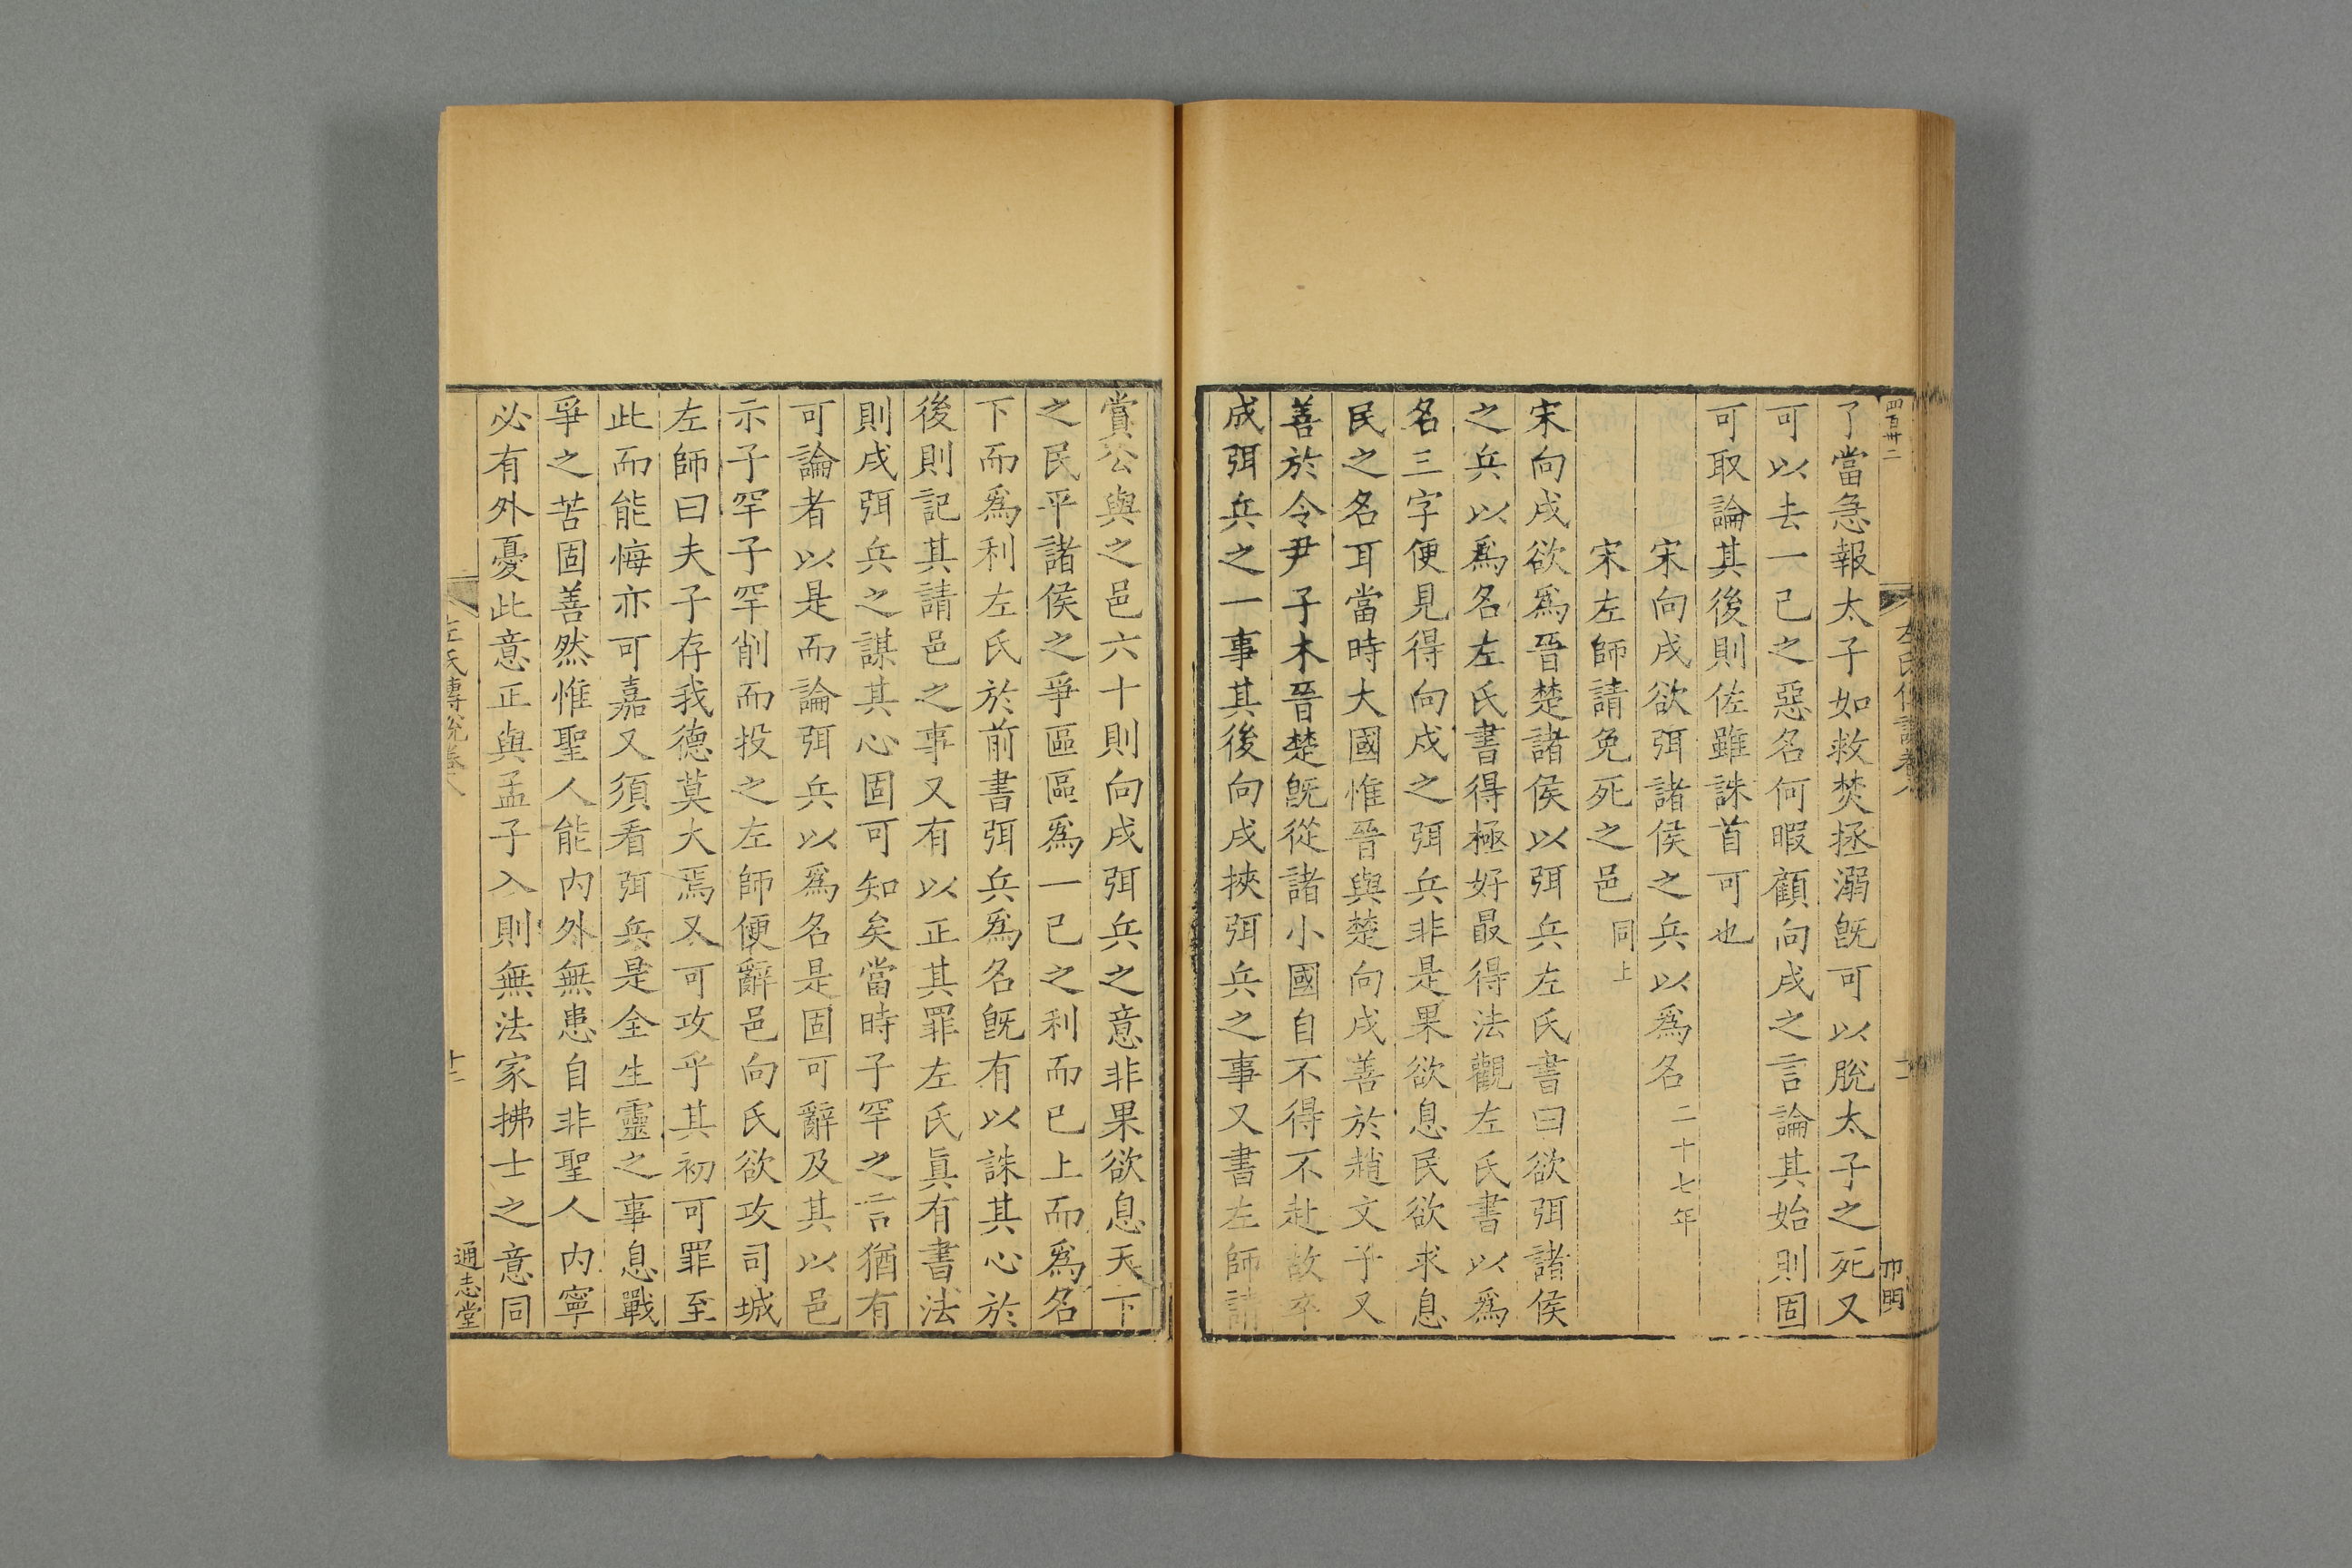 四百卅二
了當急報太子如救焚拯溺旣可以脫太子之死又
可以去一己之惡名何暇顧向戌之言論其始則固
可取論其後則佐雖誅首可也
宋向戌欲弭諸侯之兵以爲名二十七年
宋左師請免死之邑同上
宋向戌欲爲晉楚諸侯以弭兵左氏書曰欲弭諸侯
之兵以爲名左氏書得極好最得法觀左氏書以爲
名三字便見得向戌之弭兵非是果欲息民欲求息
民之名耳當時大國惟晉與楚向戌善於趙文子又
善於令尹子木晉楚旣從諸小國自不得不赴故卒
成弭兵之一事其後向戌挾弭兵之事又書左師請
賞公與之邑六十則向戌弭兵之意非果欲息天下
之民平諸侯之爭區區爲一己之利而已上而爲名
下而爲利左氏於前書弭兵爲名旣有以誅其心於
後則記其請邑之事又有以正其罪左氏眞有書法
則戌弭兵之謀其心固可知矣當時子罕之言猶有
可論者以是而論弭兵以爲名是固可辭及其以邑
示子罕子罕削而投之左師便辭邑向氏欲攻司城
左師曰夫子存我德莫大焉又可攻乎其初可罪至
此而能悔亦可嘉又須看弭兵是全生靈之事息戰
爭之苦固善然惟聖人能內外無患自非聖人內寧
必有外憂此意正與孟子入則無法家拂士之意同
左氏傳說卷八
十二
通志堂